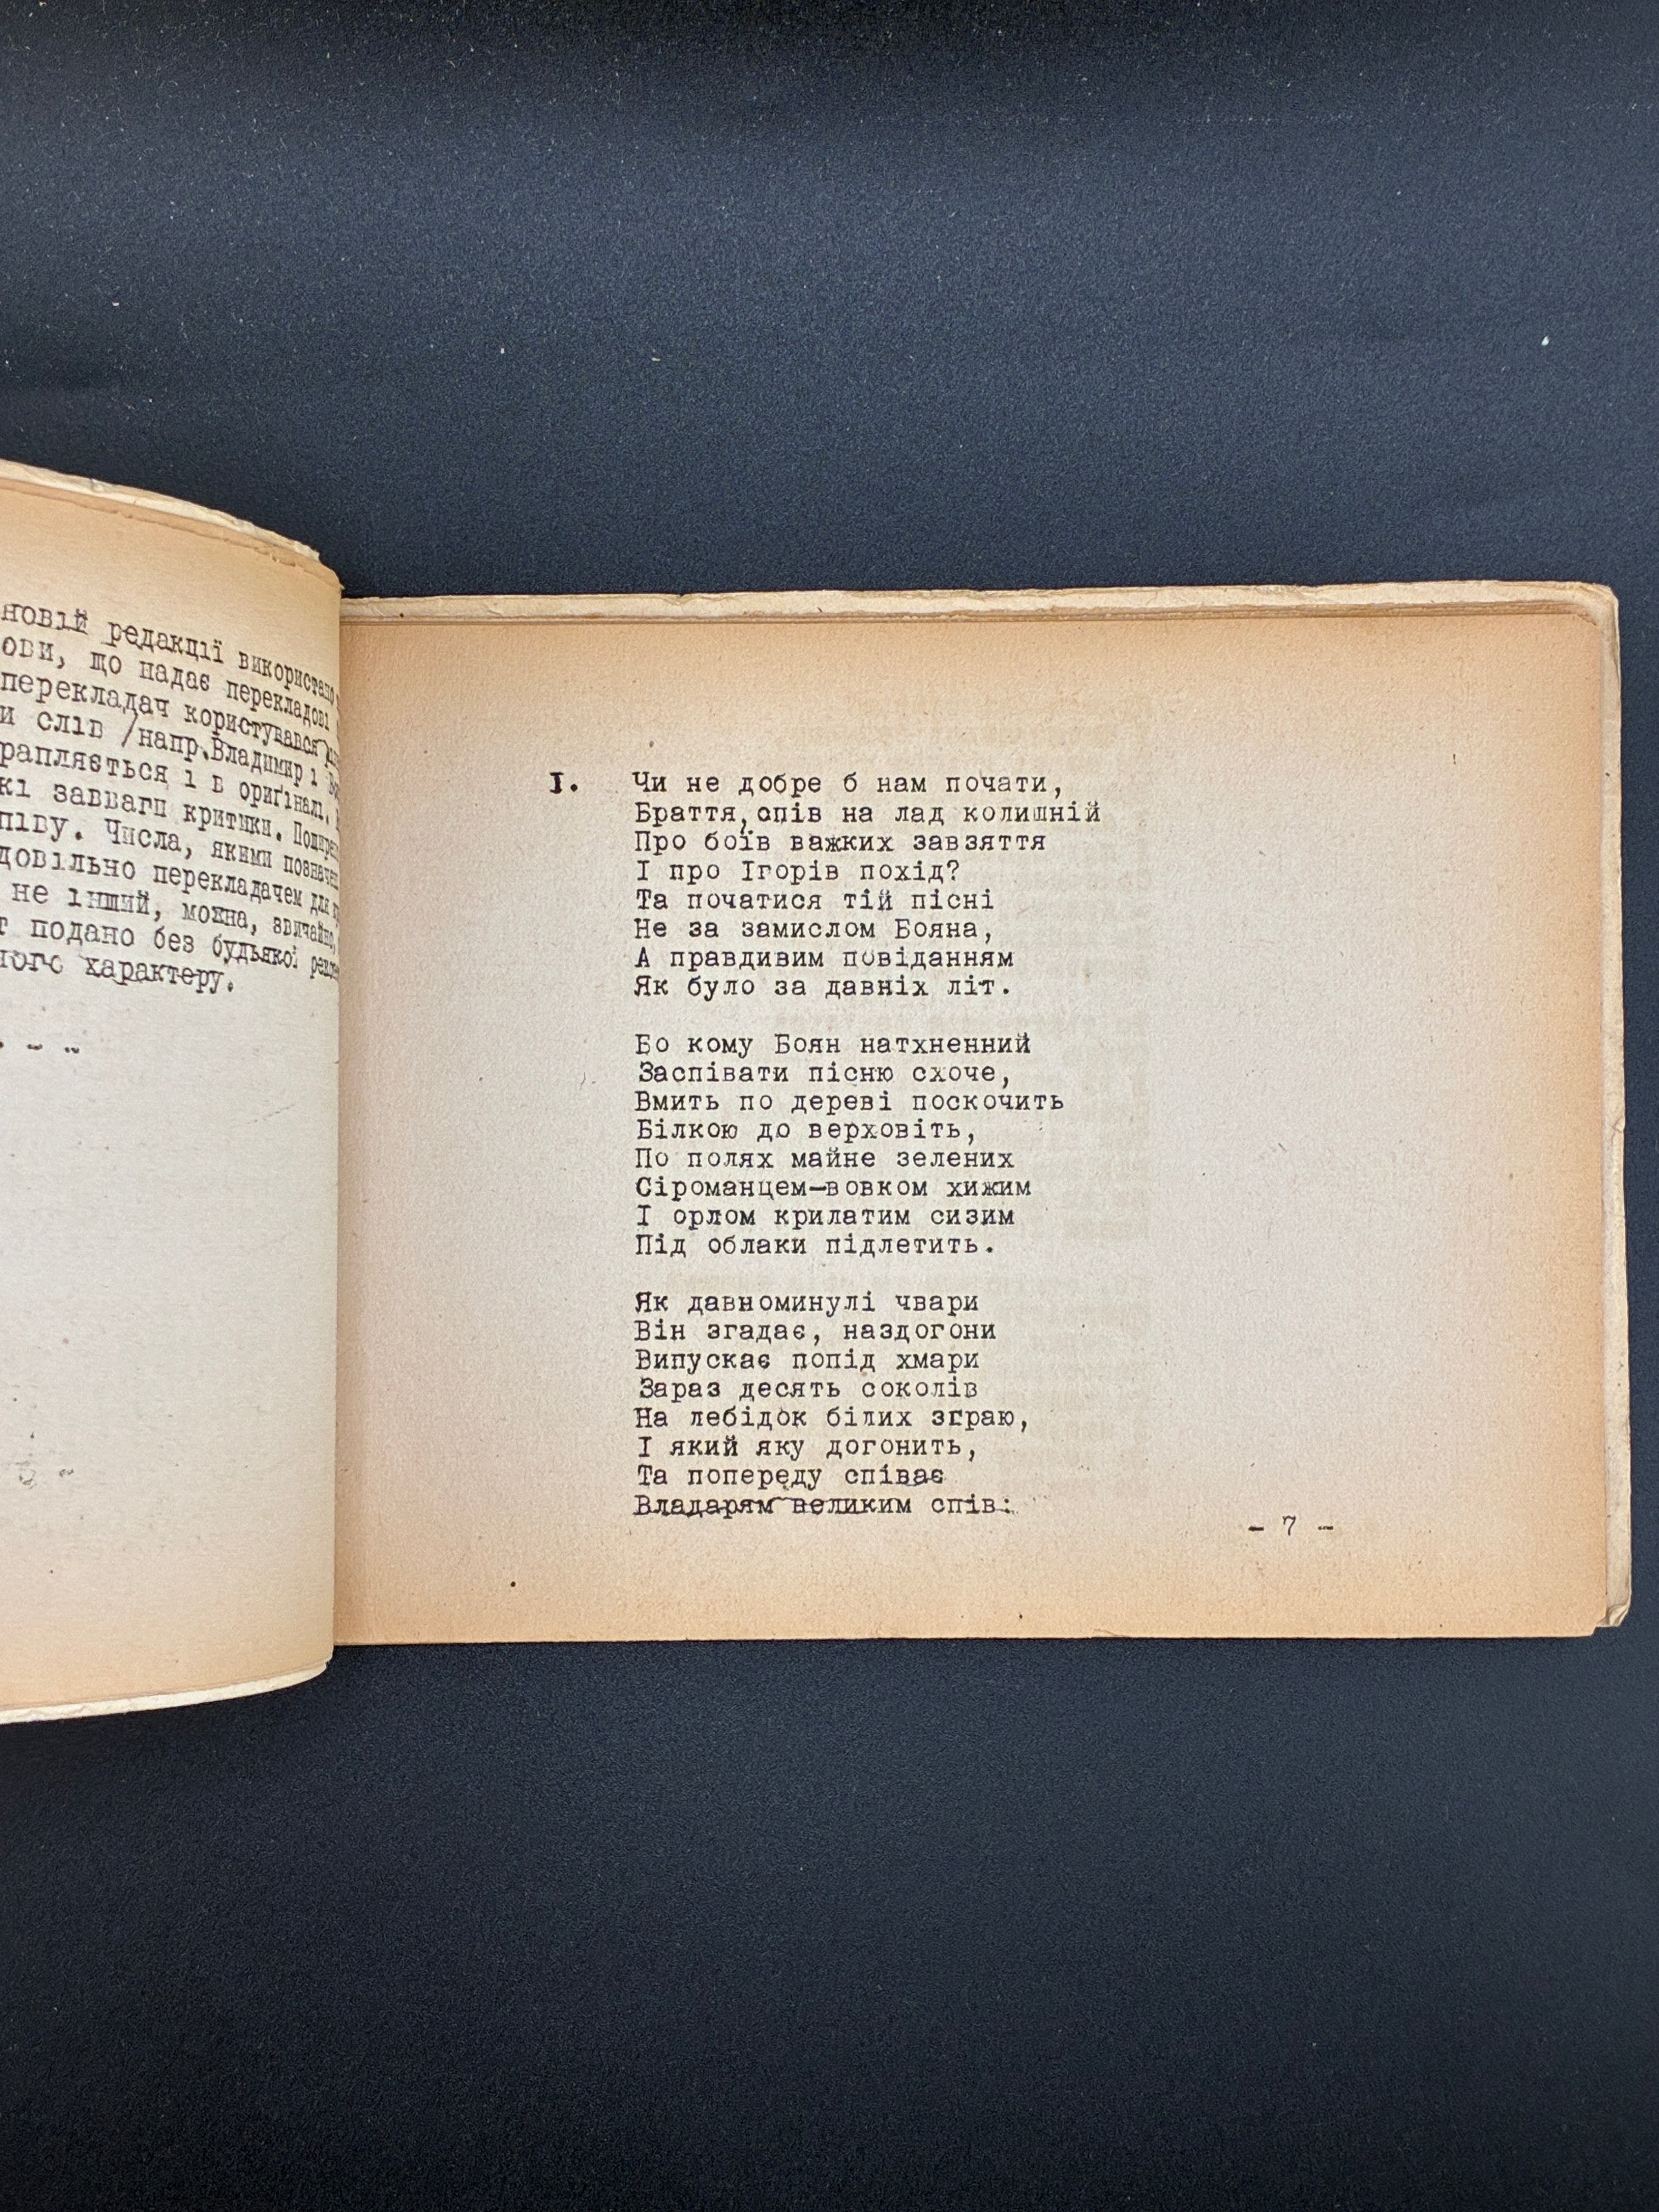 новій редакції використано
ови, що надає перекладові
перекладач користувався
и слів /напр.Владимир і
рапляється і в ориґіналі.
кі завваги критики.
піву. Числа, якими позначен
довільно перекладачем для
не інший, можна, звичайно,
т подано без будьякої
ного характеру.
I. Чи не добре б нам почати,
Браття,спів на лад колишній
Про боїв важких завзяття
І про Ігорів похід?
Та початися тій пісні
Не за замислом Бояна,
А правдивим повіданням
Як було за давніх літ.
Бо кому Боян натхненний
Заспівати пісню схоче,
Вмить по дереві поскочить
Білкою до верховіть,
По полях майне зелених
Сіроманцем-вовком хижим
І орлом крилатим сизим
Під облаки підлетить.
Як давноминулі чвари
Він згадає, наздогони
Випускає попід хмари
Зараз десять соколів
На лебідок білих зграю,
І який яку догонить,
Та попереду співає
Владарям великим спів:
- 7 -